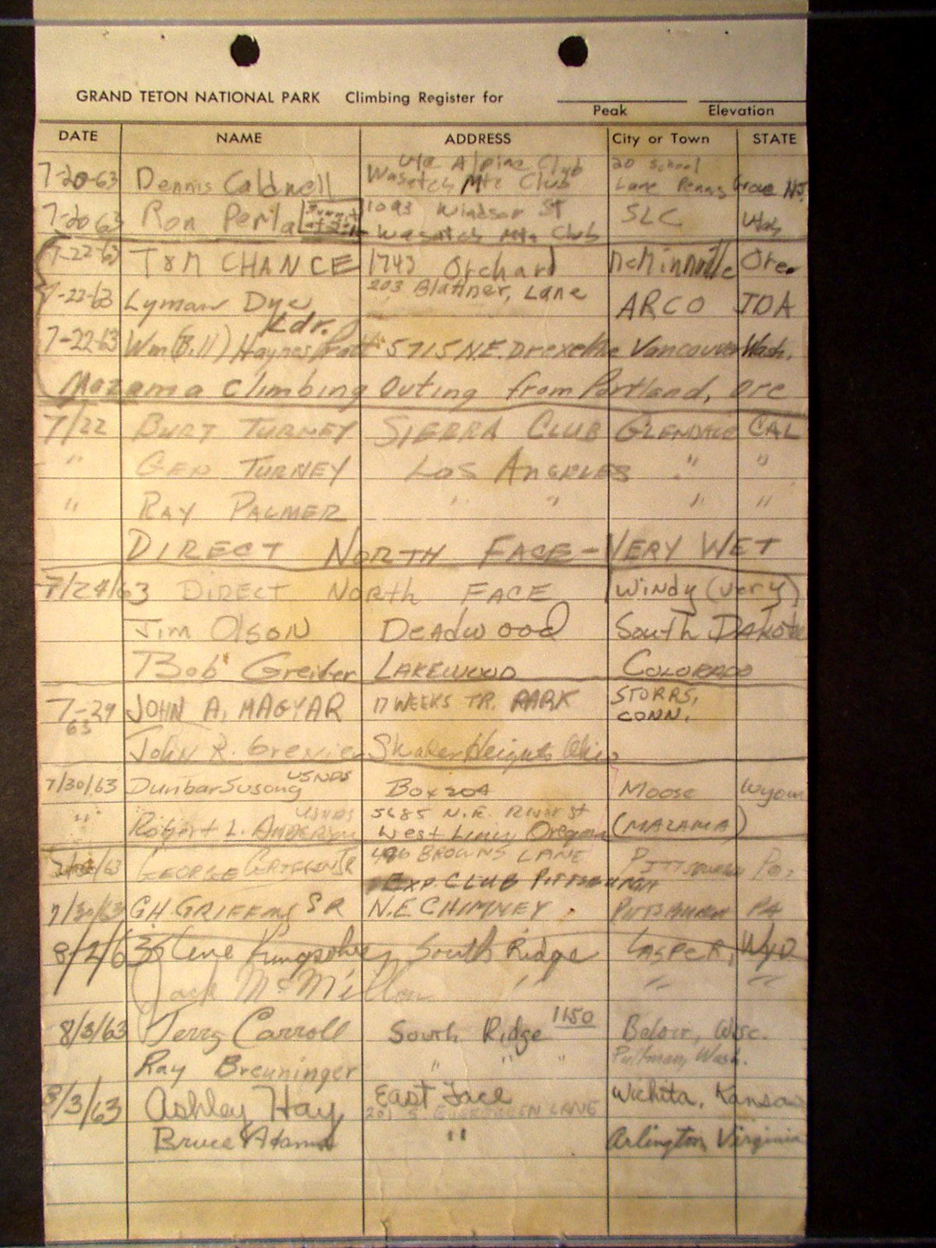 GRAND TETON NATIONAL PARK Climbing Register for
Peak Elevation
DATE NAME ADDRESS City or Town STATE
7-20-63 Dennis Caldwell Alpine Club Wasatch Mtn Club 20 School Lane Penns Grove NJ
7-20-63 Ron Perla 1093 Windsor St Wasatch Mtn Club SLC Utah
7-22-63 TOM CHANCE 1743 Orchard McMinnville Ore.
7-22-63 Lyman Dye Ldr. 203 Blattner, Lane ARCO IDA
7-22-63 Wm (Bill) Haynes 5715 N.E. Vancouver Wash.
Mazama Climbing Outing from Portland, Ore
7/22 BURT TURNEY SIERRA CLUB GLENDALE CAL
" GEN TURNEY LOS ANGELES " "
" RAY PALMER " " " "
DIRECT NORTH FACE - VERY WET
7/24/63 DIRECT North FACE Windy (very)
Jim Olson Deadwood South Dakota
Bob Greiter LAKEWOOD COLORADO
7-29 63 JOHN A. MAGYAR 17 WEEKS TR. PARK STORRS, CONN.
John R. Grenier Shaker Heights Ohio
7/30/63 Dunbar Susong USNDS Box 204 Moose Wyom
" Robert L. Anderson USNDS 5685 N.E. River St West Linn Oregon (MAZAMA)
/63 GEORGE JR BROWNS LANE PITTSBURGH Pa.
EXP. CLUB PITTSBURGH
7/30/63 G.H. GRIFFIN SR N.E CHIMNEY PITTSBURGH PA
8/2/63 Steve South Ridge CASPER, Wyo
Jack McMillan " " "
8/3/63 Terry Carroll South Ridge 1150 Beloit, Wisc.
Ray Breuninger " " " Pullman, Wash.
8/3/63 Ashley Hay East Face Wichita, Kansas
201 S EVERGREEN LANE
Bruce Adams " Arlington, Virginia